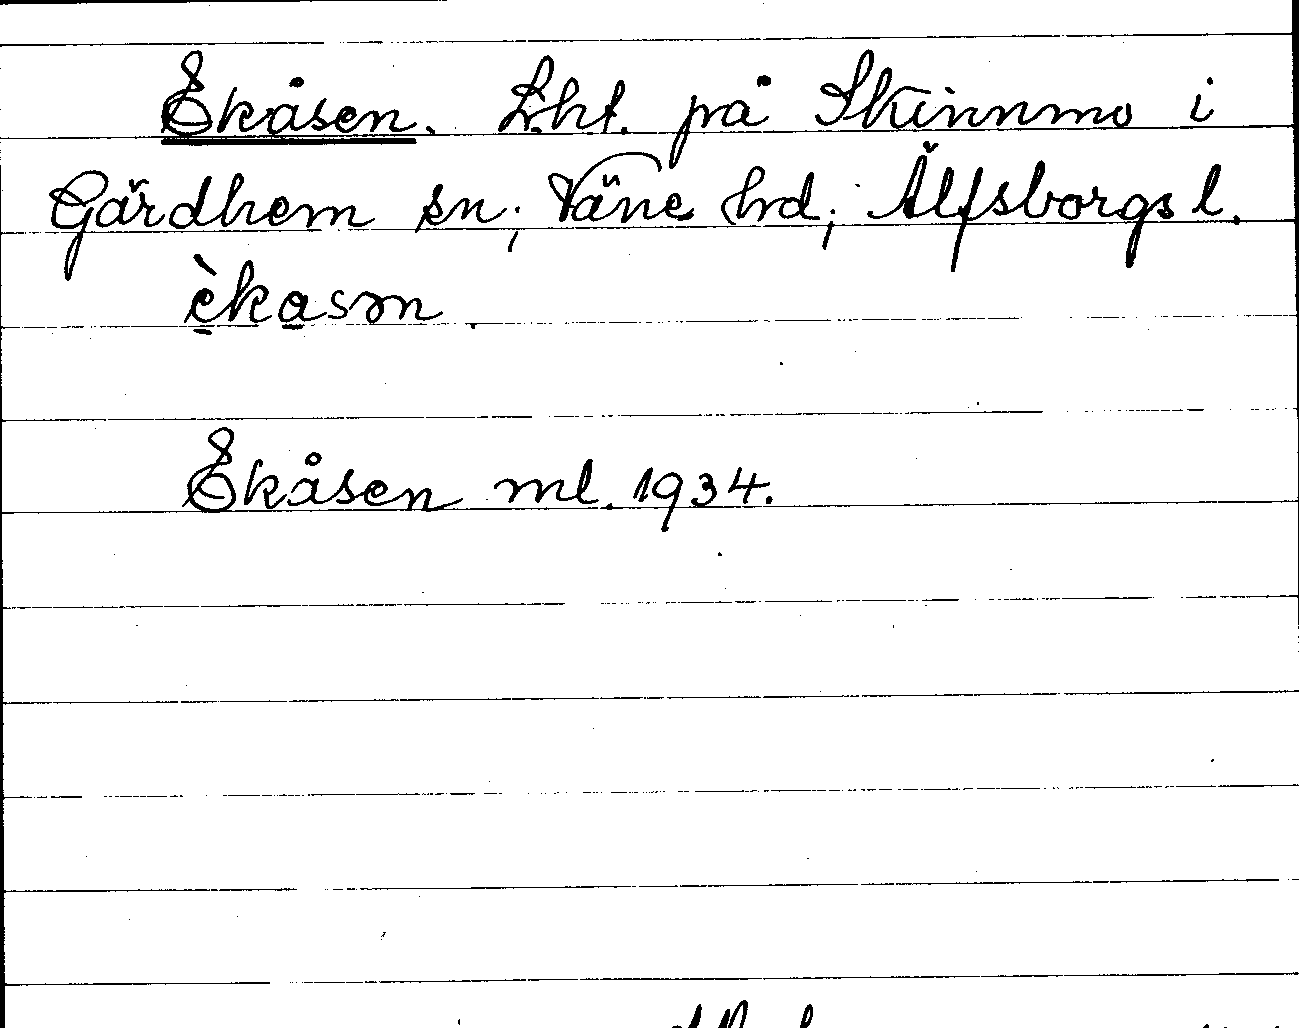 Ekåsen. Lht. på Skinnmo i
Gärdhem sn; Väne hd; Älfsborgs l.
èkasən.
Ekåsen ml. 1934.